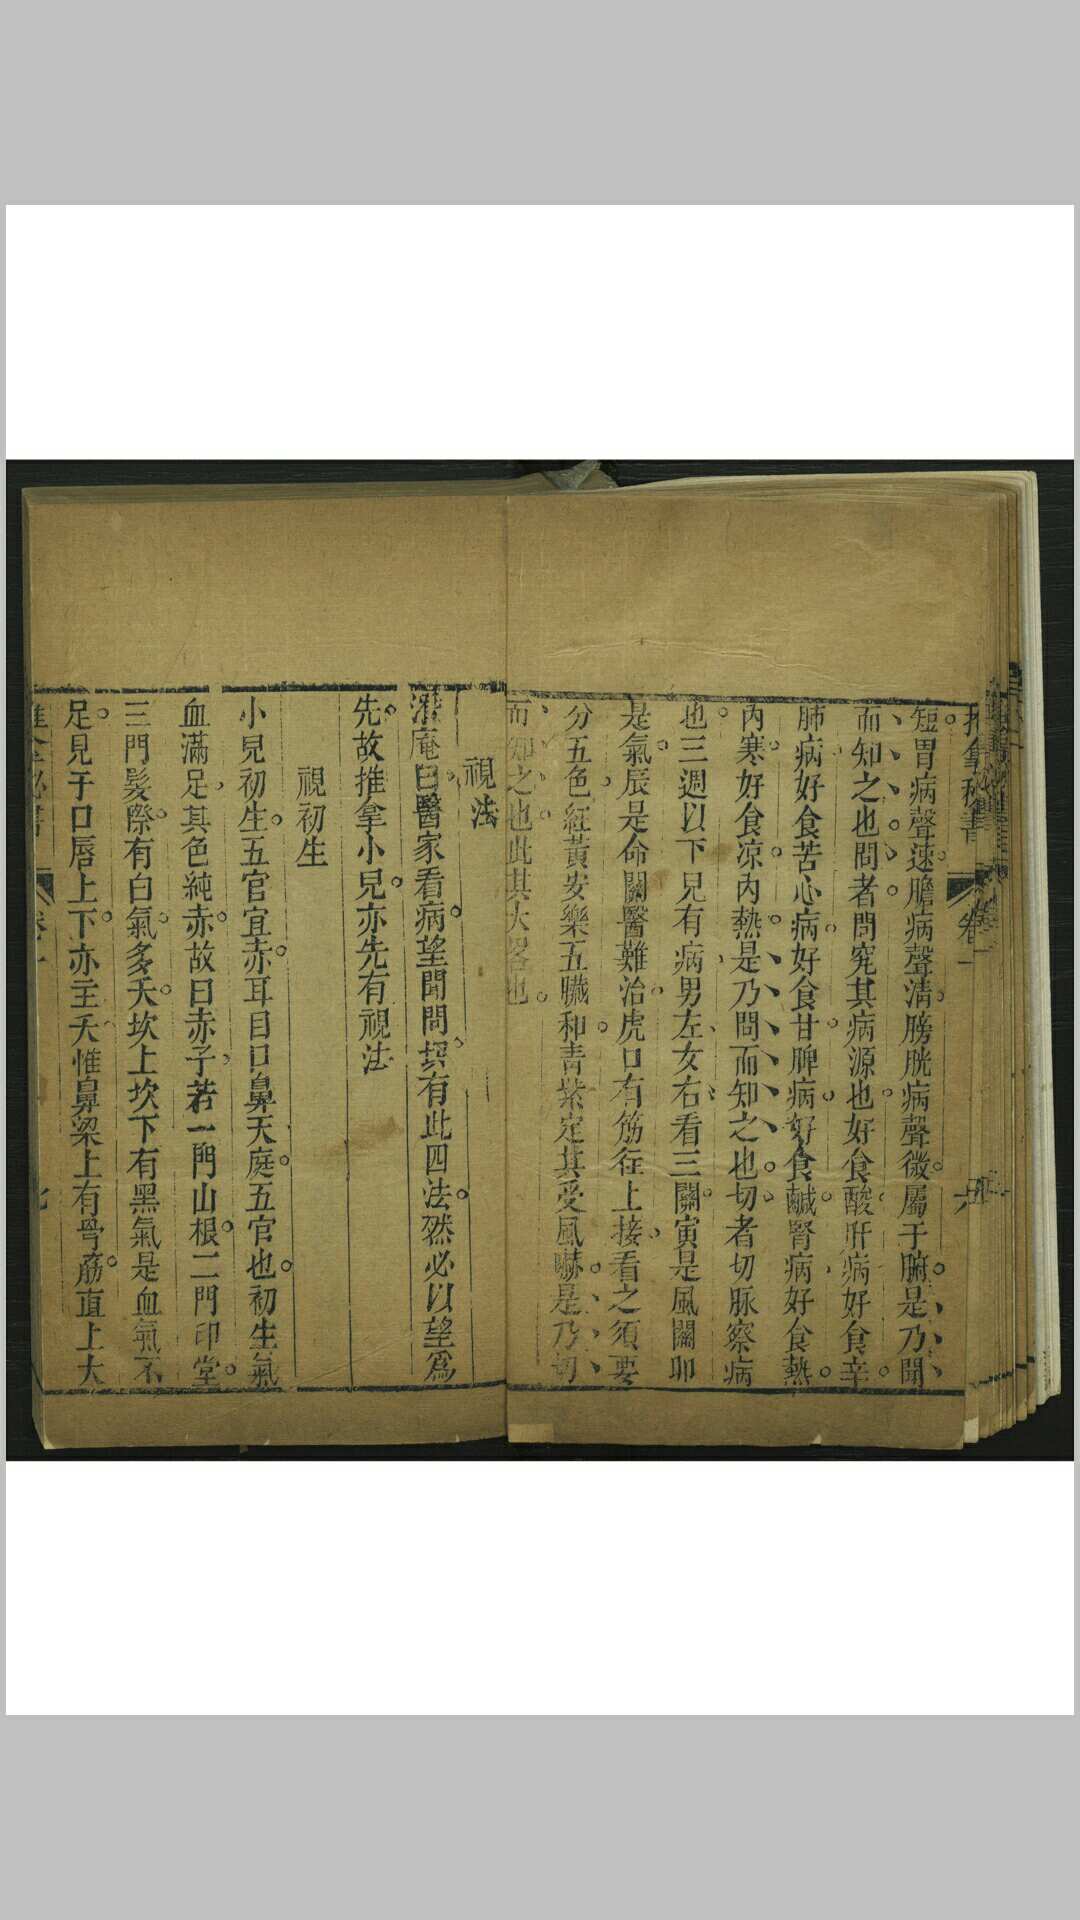 推拿秘書 卷一 六
短胃病聲速膽病聲清膀胱病聲微屬于腑是乃聞
而知之也問者問究其病源也好食酸肝病好食辛
肺病好食苦心病好食甘脾病好食鹹腎病好食熱
內寒好食凉內熱是乃問而知之也切者切脉察病
也三週以下見有病男左女右看三關寅是風關卯
是氣辰是命關醫難治虎口有筋徃上接看之須要
分五色紅黃安樂五臟和青紫定其受風嚇是乃切
而知之也此其大畧也
視法
潛庵曰醫家看病望聞問切有此四法然必以望爲
先故推拿小兒亦先有視法
視初生
小兒初生五官宜赤耳目口鼻天庭五官也初生氣
血滿足其色純赤故曰赤子若一門山根二門印堂
三門髮際有白氣多夭坎上坎下有黑氣是血氣不
足見于口唇上下亦主夭惟鼻梁上有筋直上大
推拿秘書 卷一 七